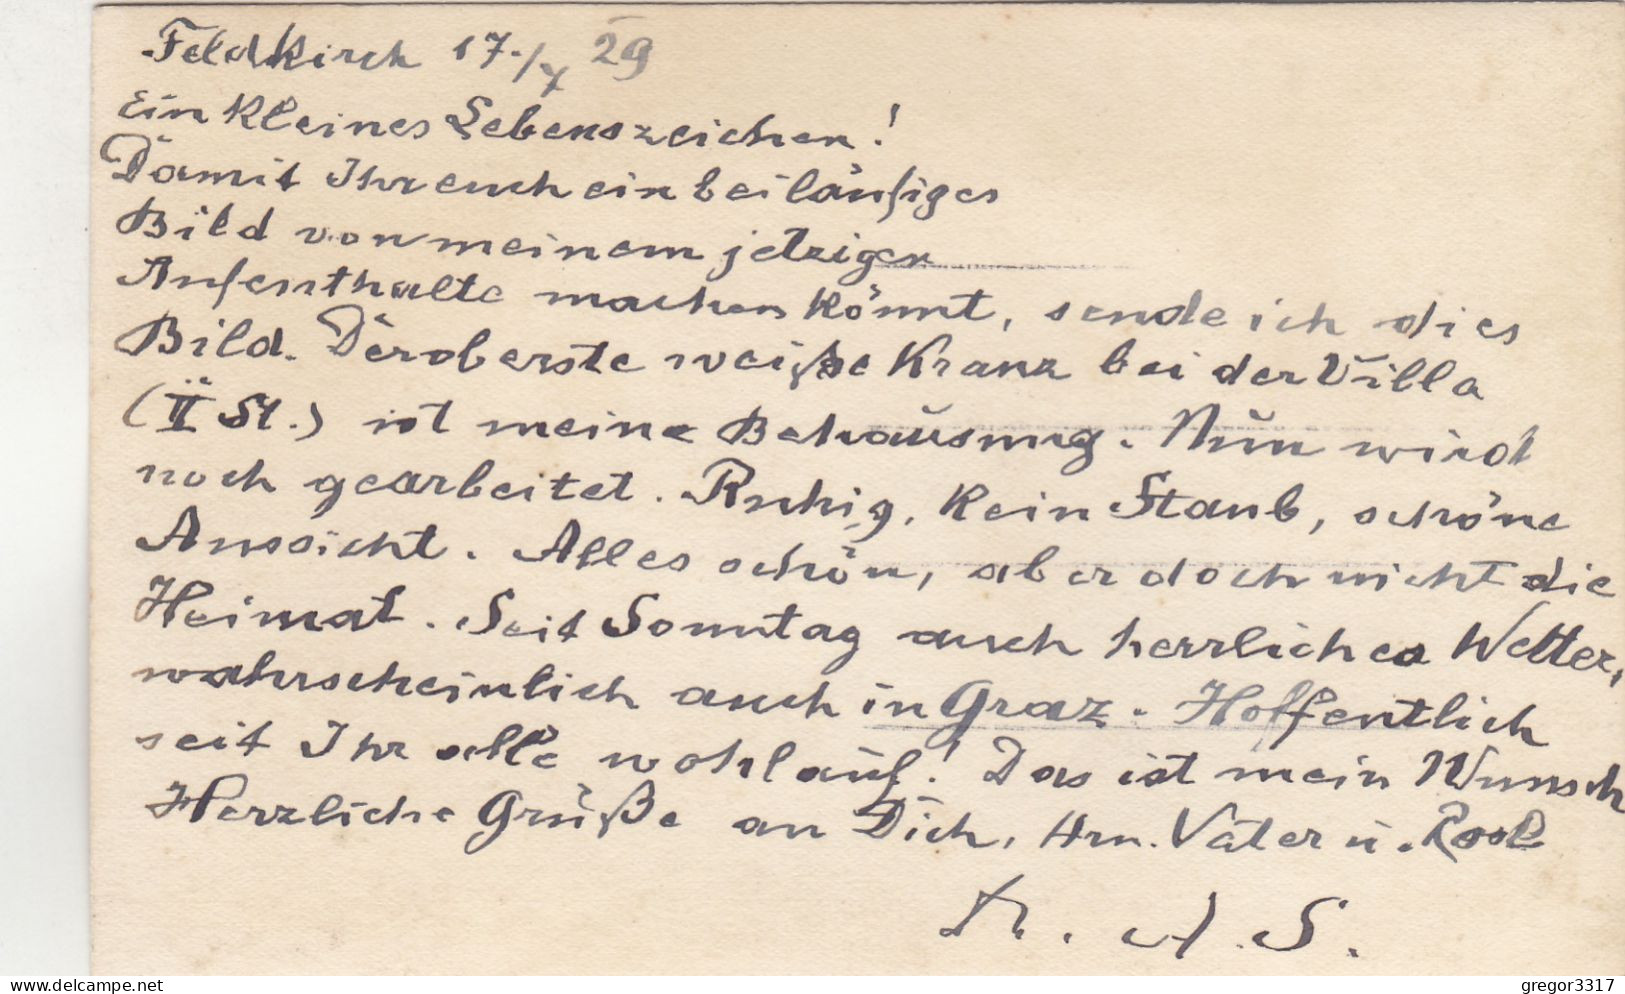 Feldkirch 17./X 29
Ein kleines Lebenszeichen!
Damit Ihr euch ein beiläufiges
Bild von meinem jetzigen
Aufenthalte machen könnt, sende ich dies
Bild. Der oberste weiße Kranz bei der Villa
(II St.) ist meine Behausung. Nun wird
noch gearbeitet. Ruhig, kein Staub, schöne
Aussicht. Alles schön, aber doch nicht die
Heimat. Seit Sonntag auch herrliches Wetter,
wahrscheinlich auch in Graz. Hoffentlich
seit Ihr alle wohlauf! Das ist mein Wunsch
Herzliche Grüße an Dich, Hrn. Vater u.
A. S.
www.delcampe.net
gregor3317